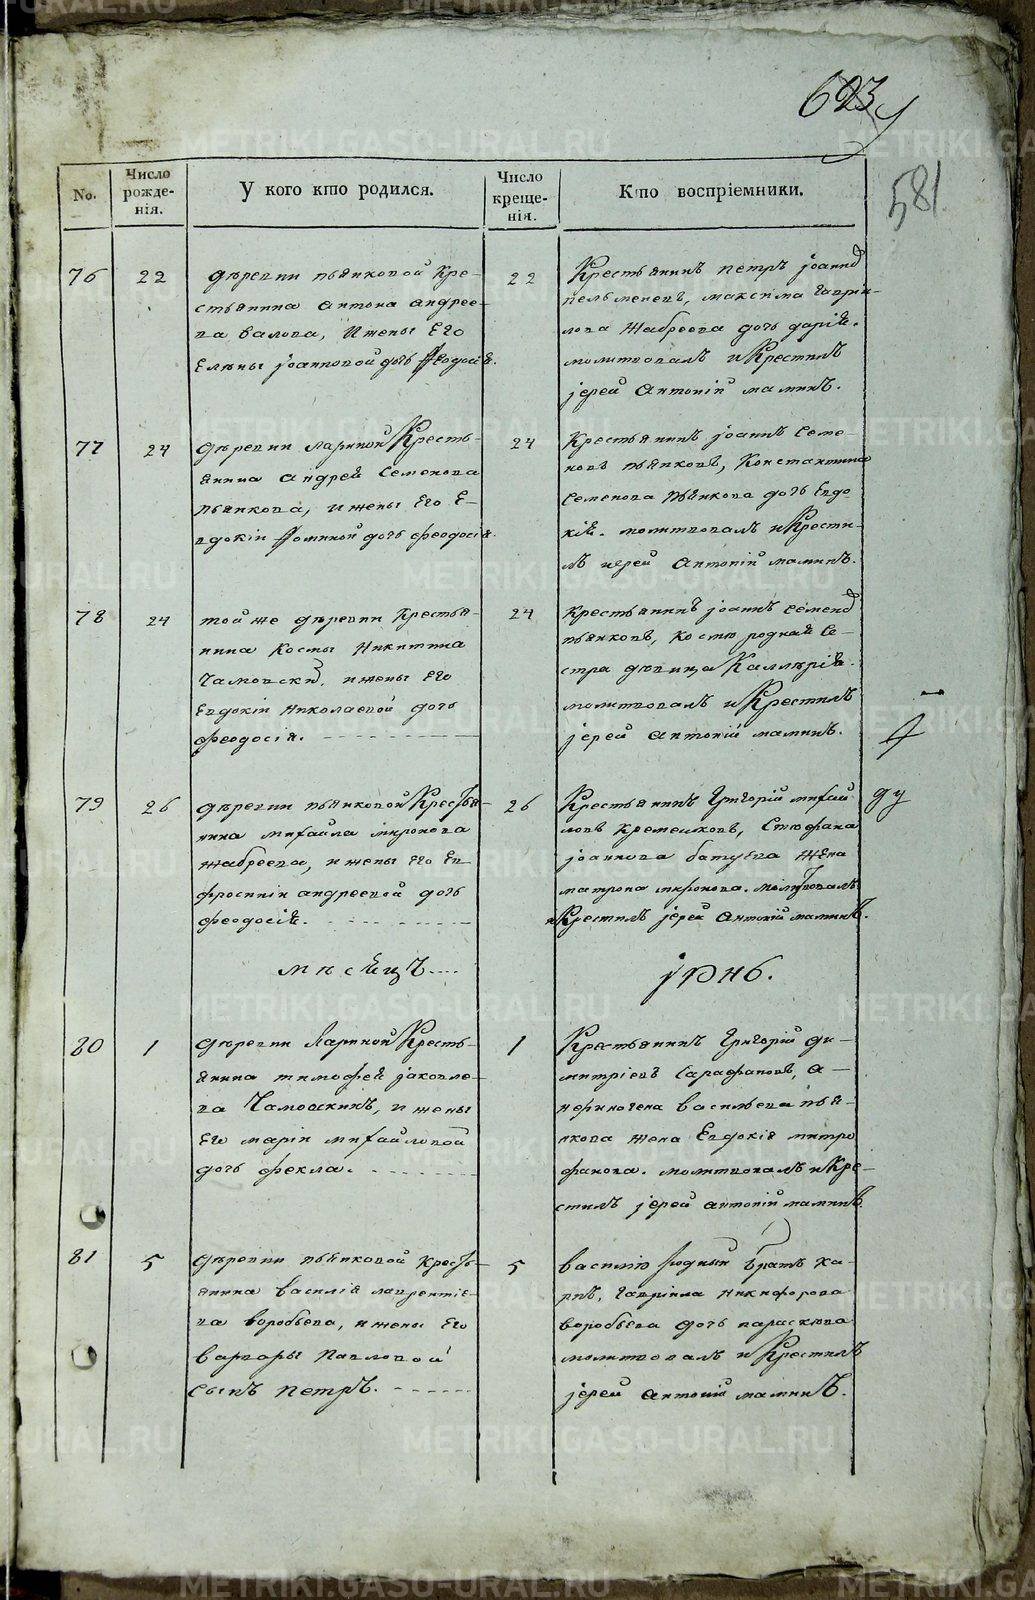 623
581
No.
Число рожде-
нія.
У кого кто родился.
Число креще-
нія.
Кто воспріемники.
76
22
деревни пьянковой Кре-
стьянина антона андрее-
ва валова, и жены Его
Елены Iоанновой дочь Феодосія.
22
Крестьянинъ петръ Iоанно
пельменевъ, максима гаврі-
лова Жабреева дочь дарія.
молитвовалъ и Крестилъ
Iерей Антоній маминъ.
77
24
деревни лариной Кресть-
янина андрея Семенова
пьянкова, и жены Его Е-
вдокіи Фоминой дочь феодосія.
24
Крестьянинъ Iоаннъ Семе-
новъ пьянковъ, Константина
Семенова пьянкова дочь Евдо
кія. молитвовалъ и Крести-
лъ иерей Антоній маминъ.
78
24
той же деревни Крестья-
нина Косты Никитина
Чамовски, и жены Его
Евдокіи Николаевой дочь
феодосія.
24
Крестьянинъ Iоаннъ Семено
пьянковъ, Косто родная Се-
стра девица Каллерія.
молитвовалъ и Крестилъ
Iерей антоній маминъ.
79
26
деревни пьянковой Крестья-
нина михаила миронова
жабреева, и жены Его Ев
фросиніи андреевой дочь
феодосія.
26
Крестьянинъ Григорій михай
ловъ Кремелковъ, Стефана
Iоаннова батуева жена
матрона миронова. молитвовалъ
и Крестилъ Iерей Антоній маминъ.
месяцъ
Iюнь.
80
1
деревни Лариной Кресть-
янина тимофея Iаковле-
ва Чамовскихъ, и жены
Его маріи михайловой
дочь фекла.
1
Крестьянинъ Григорій ди-
митріевъ Сарафановъ, а-
финогена васильева пья-
нкова жена Евдокія митро
фанова. молитвовалъ и Кре-
стилъ Iерей антоній маминъ.
81
5
деревни пьянковой Кресть-
янина василія лаврентіе-
ва воробьева, и жены Его
варвары павловой
Сынъ петръ.
5
василію родный братъ ка-
рпъ, гавріила никифорова
воробьева дочь параскева
молитвовалъ и Крестилъ
Iерей Антоній маминъ.
METRIKI.GASO-URAL.RU